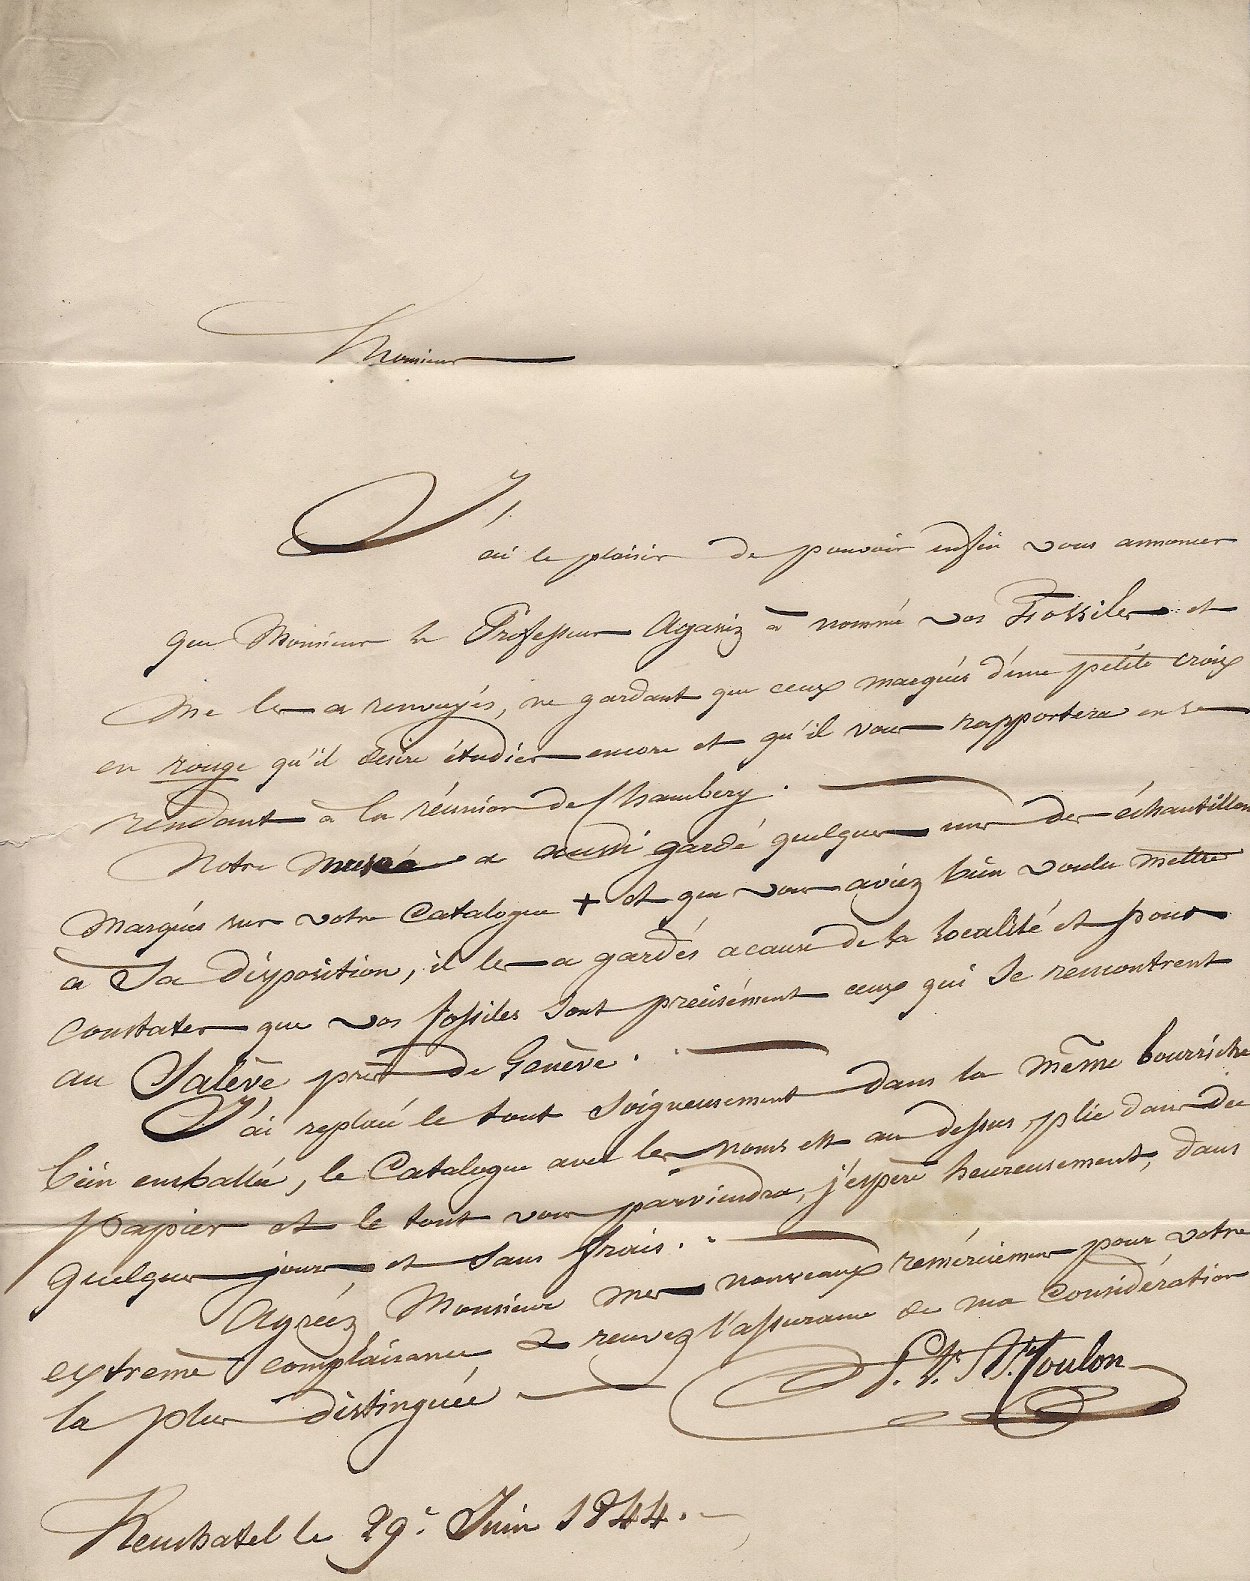 Monsieur
J'ai le plaisir de pouvoir enfin vous annoncer
que Monsieur le Professeur Agassiz à nommé vos Fossiles et
me les a renvoyés, ne gardant que ceux marqués d'une petite croix
en rouge qu'il desire étudier encore et qu'il vous rapportera en se
rendant à la réunion de Chambery.
Notre Musée a aussi gardé quelques uns des échantillons
marqués sur votre Catalogue + et que vous aviez bien voulu mettre
a sa disposition, il les a gardés acause de la localité et pour
constater que vos fossiles sont precisément ceux qui se rencontrent
au Salève près de Genève.
J'ai replacé le tout soigneusement dans la même bourriche
bien emballée, le Catalogue avec les noms est au dessus plié dans du
papier et le tout vous parviendra, j'espère heureusement, dans
quelques jours et sans frais.
Agréez Monsieur mes nouveaux remérciemens pour votre
extreme complaisance & recevez l'assurance de ma considération
la plus distinguée
Coulon
Neuchatel le 29e Juin 1844.